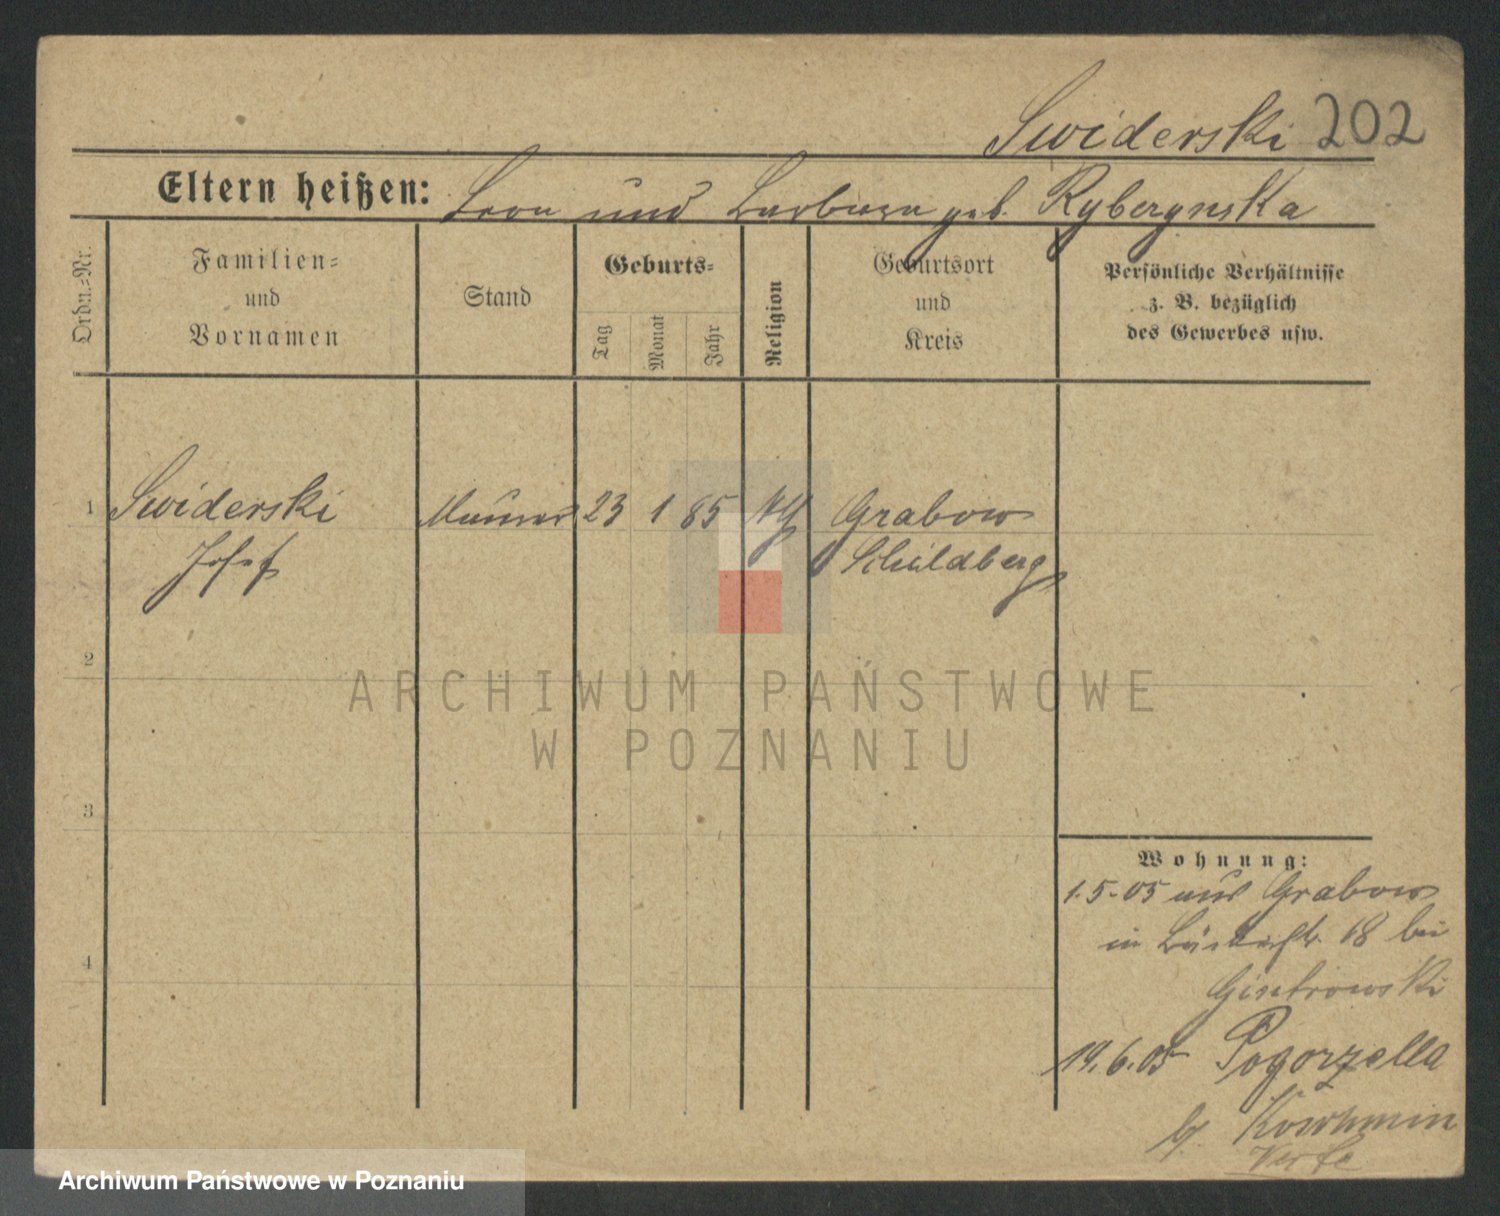 Swiderski 202
Eltern heißen: Leon und Barbara geb. Rybczynska
Ordn.-Nr.
Familien-
und
Vornamen
Stand
Geburts-
Tag
Monat
Jahr
Religion
Geburtsort
und
Kreis
Persönliche Verhältnisse
z. B. bezüglich
des Gewerbes usw.
1 Swiderski Maurer 23 1 85 Grabow
Josef Schildberg
2
3
4
Wohnung:
1.5.05 aus Grabow
in 18 bei
19.6.05 Pogorzella
ARCHIWUM PAŃSTWOWE
W POZNANIU
Archiwum Państwowe w Poznaniu